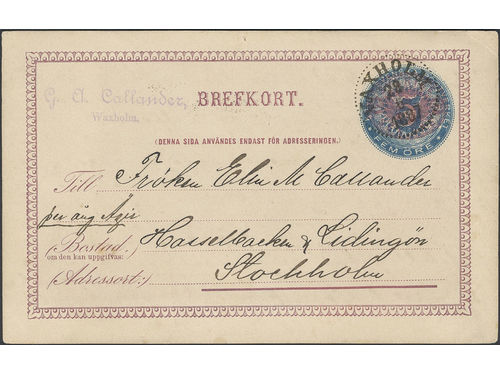 G. A. Callander,
Waxholm.
BREFKORT.
WAXHOLM
1887
5
FEM ÖRE
(DENNA SIDA ANVÄNDES ENDAST FÖR ADRESSERINGEN.)
Till Fröken Elin M Callander
per ång
(Bostad, Hasselbacken & Lidingön
om den kan uppgifvas:)
(Adressort:) Stockholm